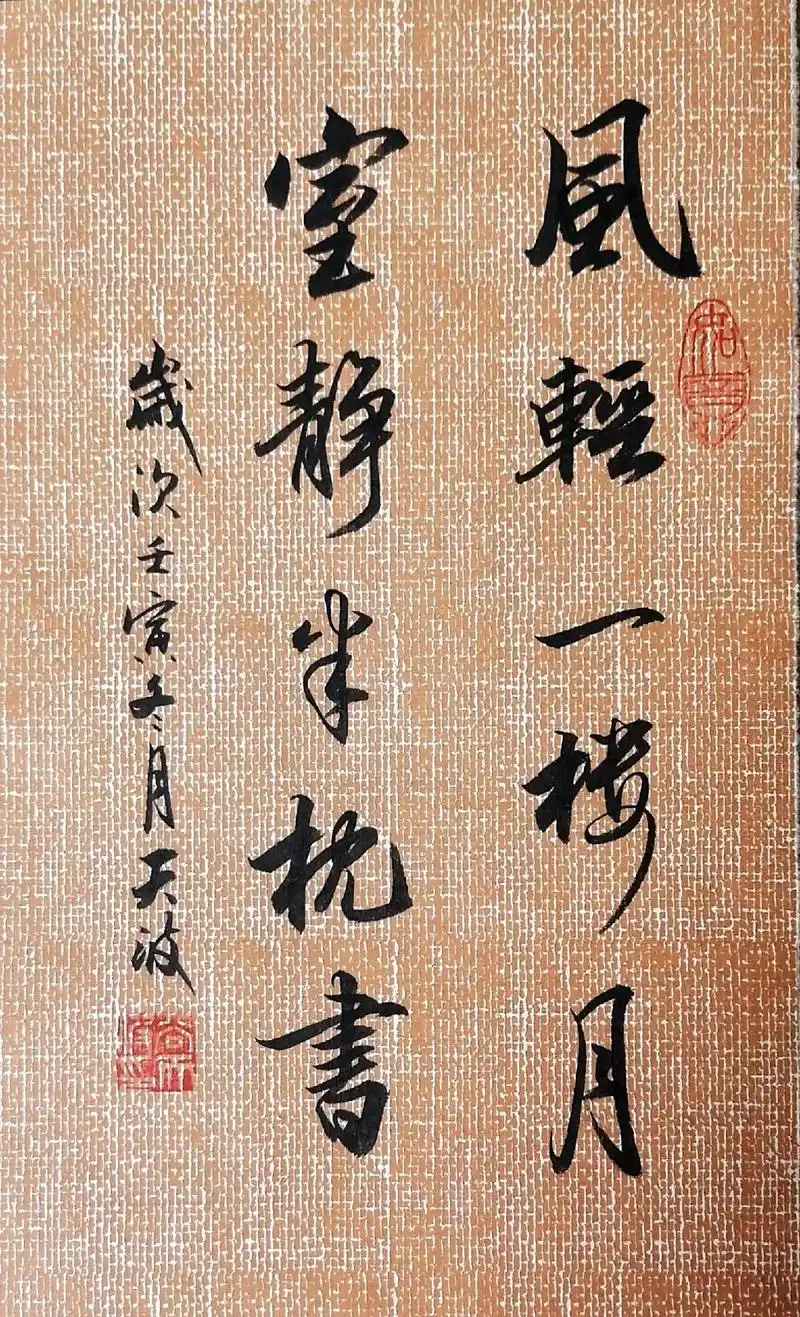 風輕一楼月
室靜半枕書
歲次壬寅冬月天波